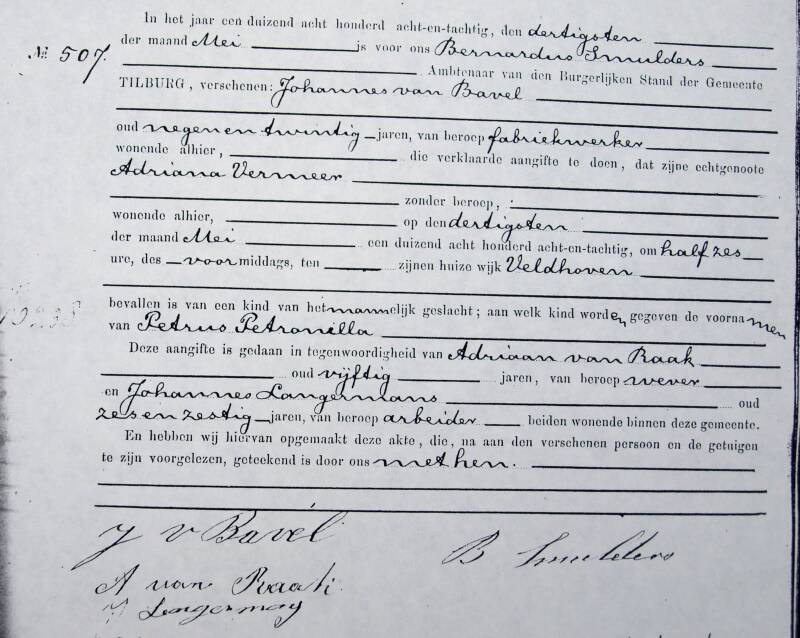 In het jaar een duizend acht honderd acht-en-tachtig, den dertigsten
№ 507. der maand Mei is voor ons Bernardus Smulders
Ambtenaar van den Burgerlijken Stand der Gemeente
TILBURG, verschenen: Johannes van Bavel
oud negen en twintig jaren, van beroep fabriekwerker
wonende alhier, die verklaarde aangifte te doen, dat zijne echtgenoote
Adriana Vermeer
zonder beroep,
wonende alhier, op den dertigsten
der maand Mei een duizend acht honderd acht-en-tachtig, om half zes
ure, des voormiddags, ten zijnen huize wijk Veldhoven
bevallen is van een kind van het mannelijk geslacht; aan welk kind worden gegeven de voornamen
van Petrus Petronilla
Deze aangifte is gedaan in tegenwoordigheid van Adriaan van Raak
oud vijftig jaren, van beroep wever
en Johannes Langermans oud
zes en zestig jaren, van beroep arbeider beiden wonende binnen deze gemeente.
En hebben wij hiervan opgemaakt deze akte, die, na aan den verschenen persoon en de getuigen
te zijn voorgelezen, geteekend is door ons met hen.
J v Bavel
B Smulders
A van Raak